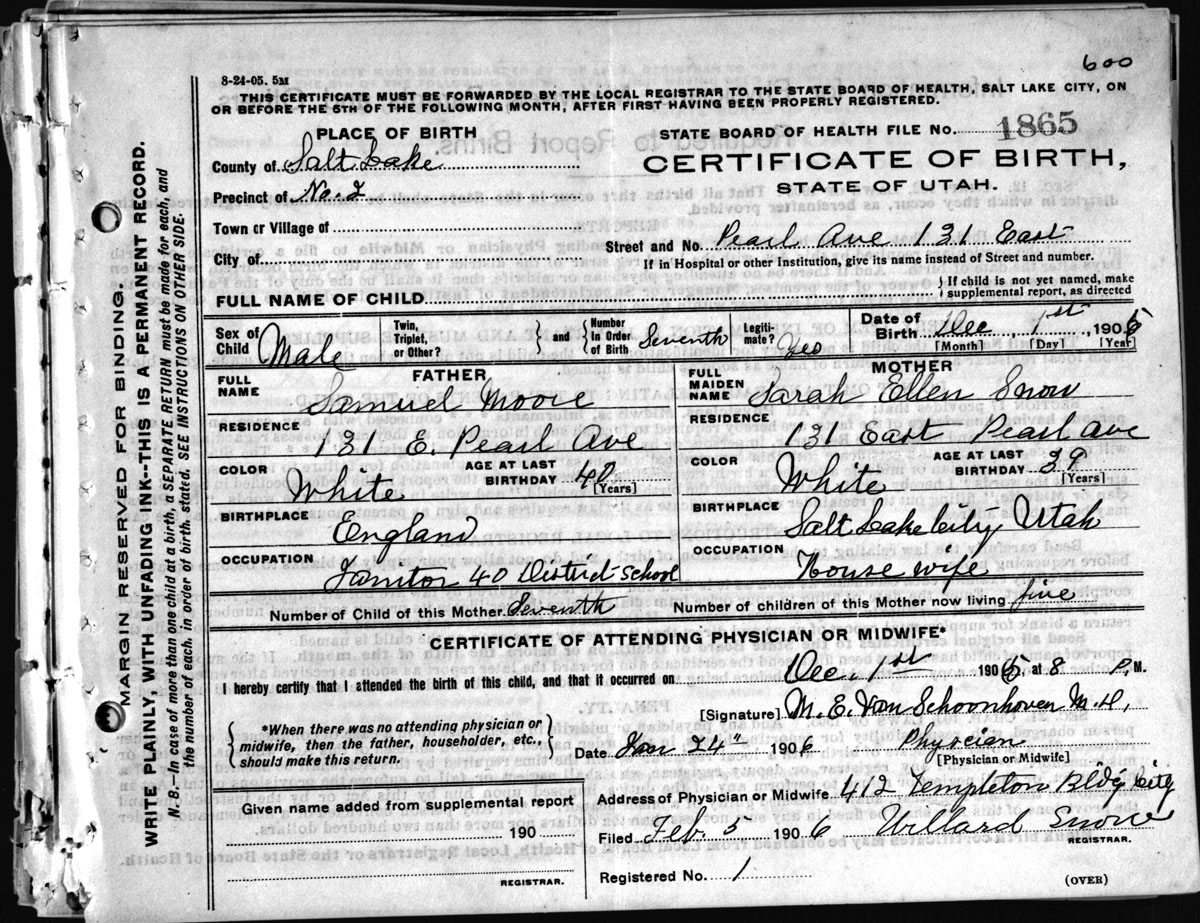 600
8-24-05. 5M
THIS CERTIFICATE MUST BE FORWARDED BY THE LOCAL REGISTRAR TO THE STATE BOARD OF HEALTH, SALT LAKE CITY, ON
OR BEFORE THE 5TH OF THE FOLLOWING MONTH, AFTER FIRST HAVING BEEN PROPERLY REGISTERED.
PLACE OF BIRTH
STATE BOARD OF HEALTH FILE No. 1865
County of Salt Lake
CERTIFICATE OF BIRTH,
Precinct of No. 2
STATE OF UTAH.
Town or Village of
Street and No. Pearl Ave 131 East
City of
If in Hospital or other Institution, give its name instead of Street and number.
FULL NAME OF CHILD
If child is not yet named, make supplemental report, as directed
Sex of Child Male
Twin, Triplet, or Other?
and Number in Order of Birth Seventh
Legitimate? Yes
Date of Birth Dec 1st, 1905
[Month] [Day] [Year]
FATHER
MOTHER
FULL NAME Samuel Moore
FULL MAIDEN NAME Sarah Ellen Snow
RESIDENCE 131 E. Pearl Ave
RESIDENCE 131 East Pearl Ave
COLOR White AGE AT LAST BIRTHDAY 40 [Years]
COLOR White AGE AT LAST BIRTHDAY 39 [Years]
BIRTHPLACE England
BIRTHPLACE Salt Lake City Utah
OCCUPATION Janitor 40 District School
OCCUPATION House wife
Number of Child of this Mother Seventh
Number of children of this Mother now living five
CERTIFICATE OF ATTENDING PHYSICIAN OR MIDWIFE*
I hereby certify that I attended the birth of this child, and that it occurred on Dec. 1st 1905, at 8 P. M.
[Signature] M. E. Van Schoonhoven M.D.
*When there was no attending physician or midwife, then the father, householder, etc., should make this return.
Date Jan 24" 1906 Physcian
[Physician or Midwife]
Given name added from supplemental report
190
REGISTRAR.
Address of Physician or Midwife 412 Templeton Bldg City
Filed Feb. 5 1906 Willard Snow
REGISTRAR.
Registered No. 1
(OVER)
MARGIN RESERVED FOR BINDING.
WRITE PLAINLY, WITH UNFADING INK--THIS IS A PERMANENT RECORD.
N. B.--In case of more than one child at a birth, a SEPARATE RETURN must be made for each, and
the number of each, in order of birth, stated. SEE INSTRUCTIONS ON OTHER SIDE.